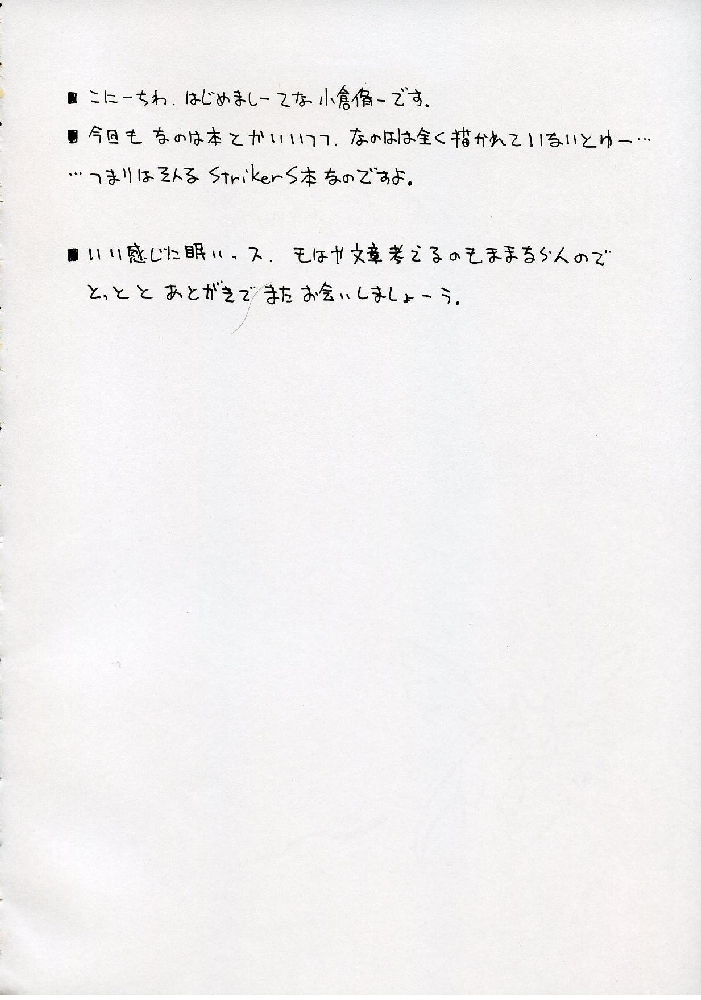 ■ こにーちわ、はじめましーてな 小倉脩一です。
■ 今回も なのは本とかいいつつ、なのはは全く描かれていないとゆー…
…つまりはそんな StrikerS本 なのですよ。
■ いい感じに眠いっス、もはや文章考えるのもままならんので
とっとと あとがきで またお会いしましょーう。